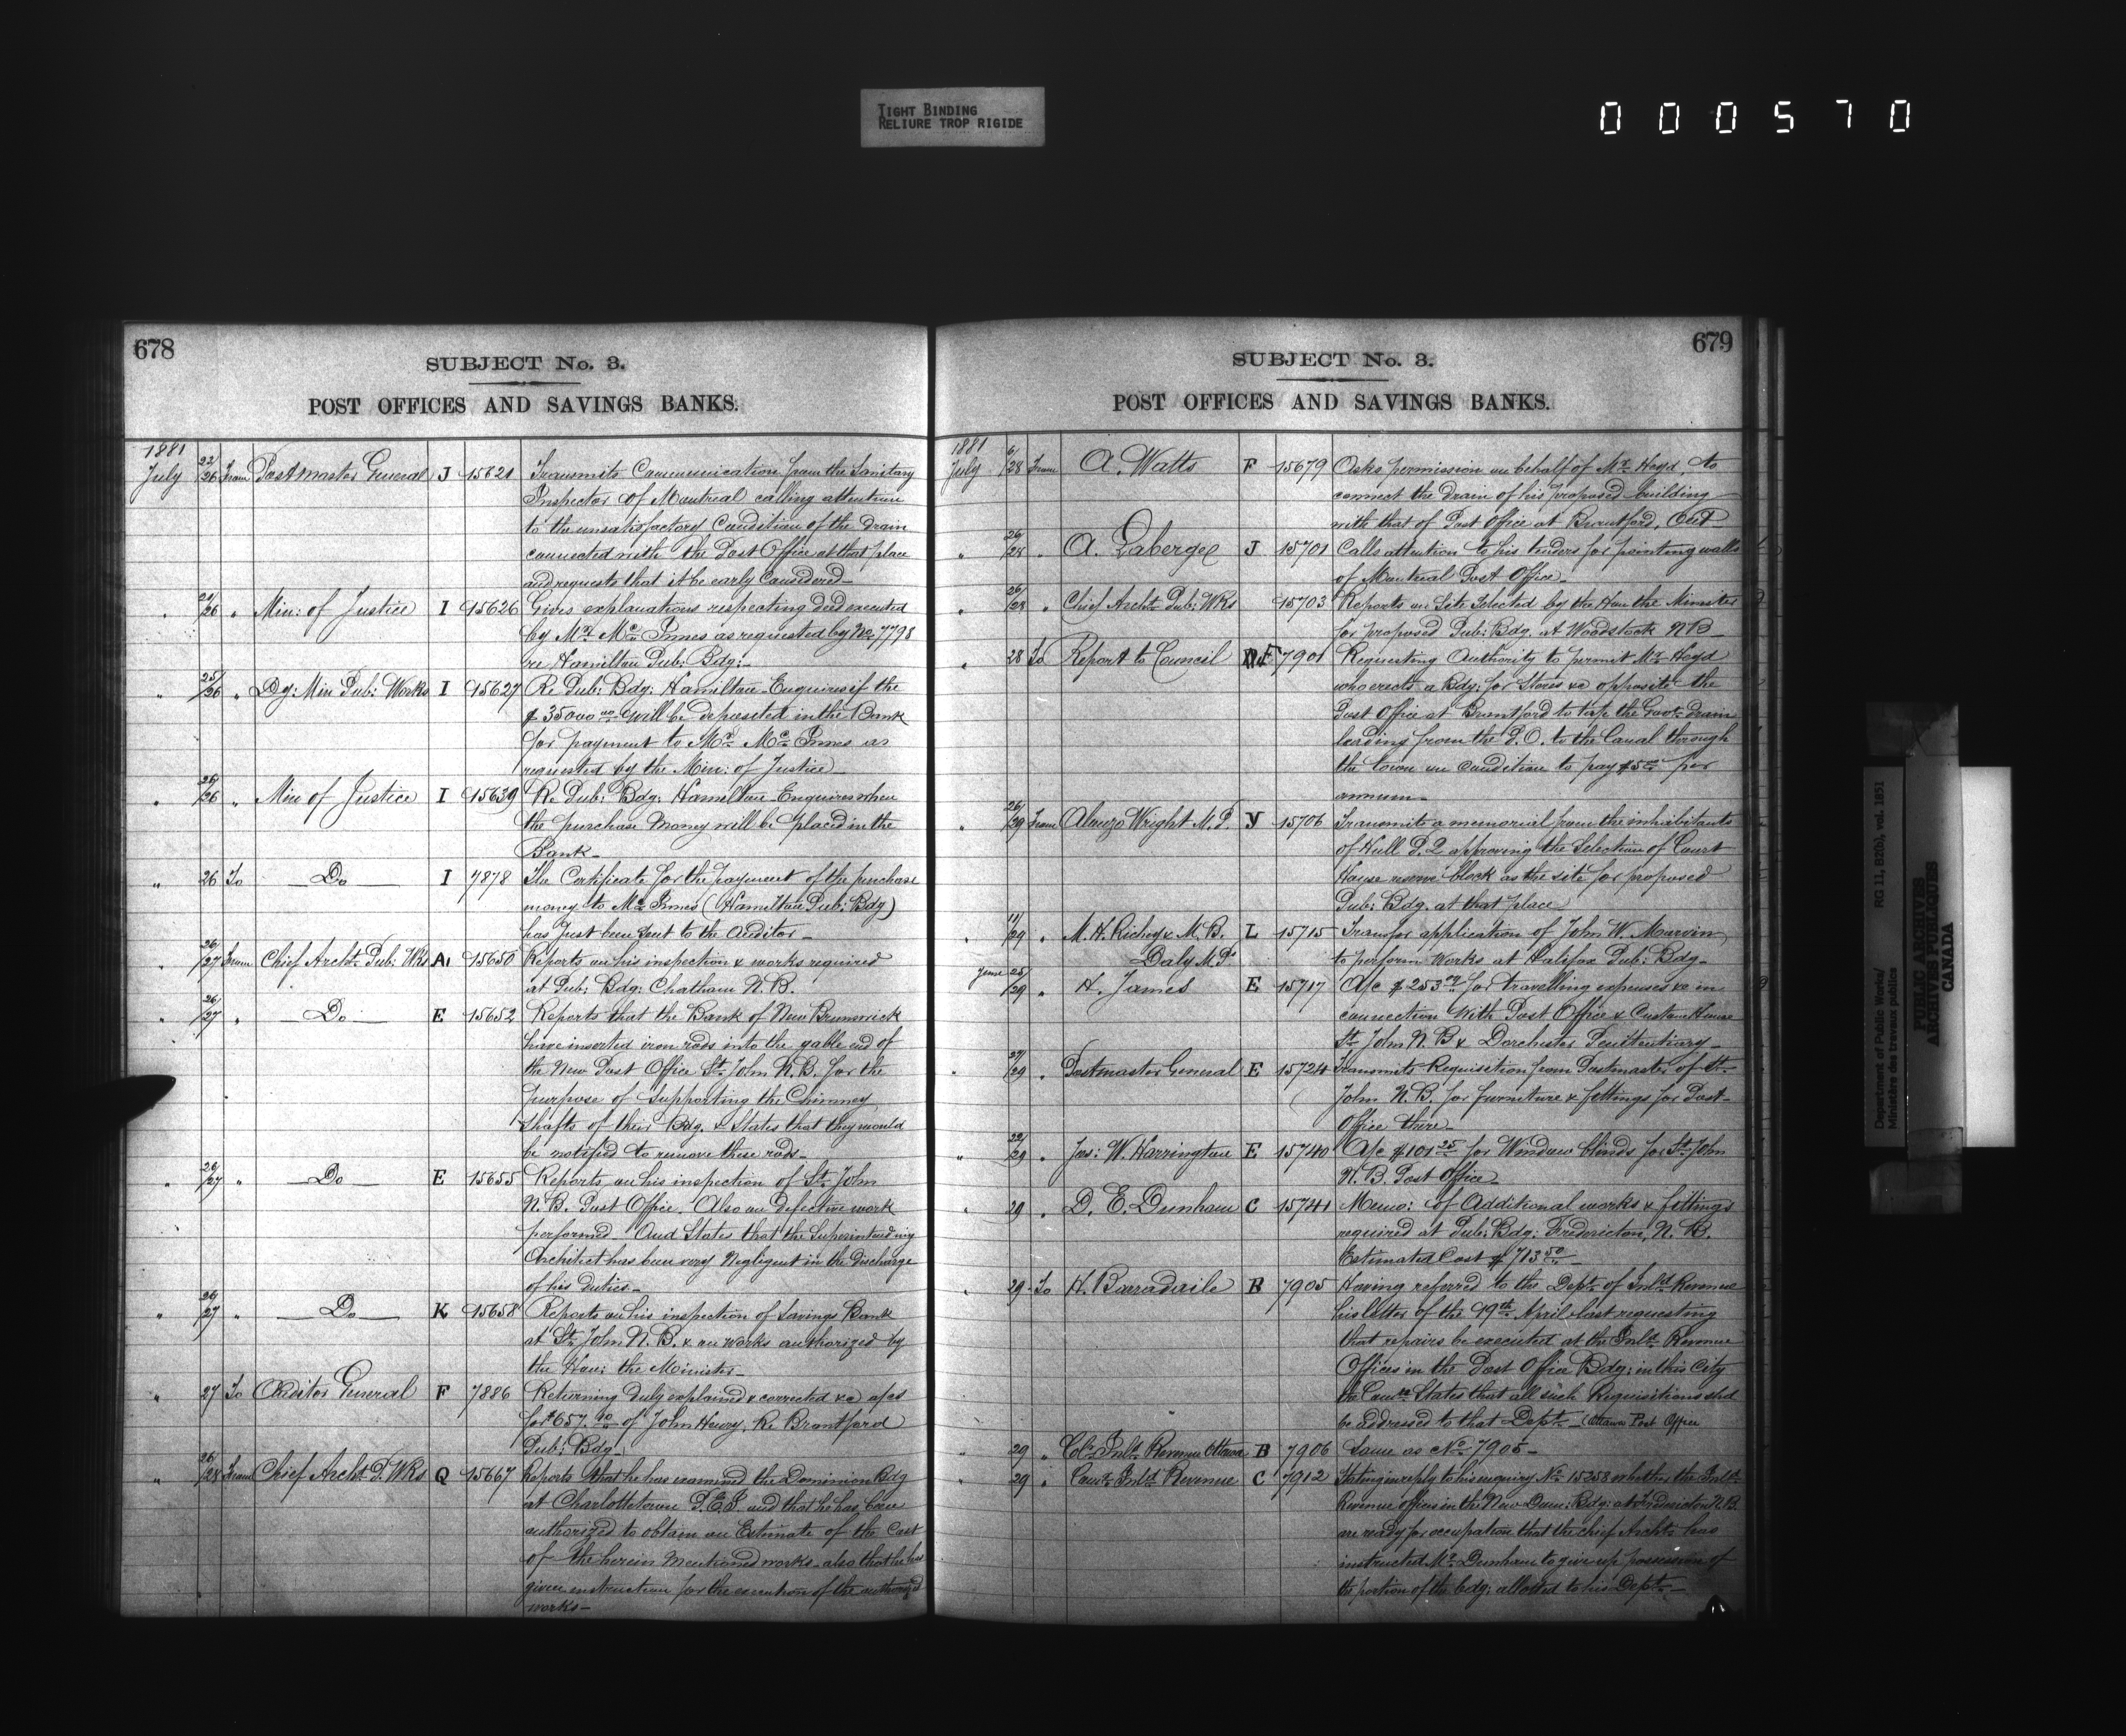 TIGHT BINDING
RELIURE TROP RIGIDE
000570
678
SUBJECT No. 3.
POST OFFICES AND SAVINGS BANKS.
1881
July 23/26 From Postmaster General J 15621 Transmits Communication from the Sanitary
Inspector of Montreal calling attention
to the unsatisfactory Condition of the drain
connected with the Post Office at that place
and requests that it be early Considered
" 26 " Min: of Justice I 15626 Gives explanations respecting deed executed
by Mr. McInnes as requested by No 7798
re Hamilton Pub: Bdg:
" 25/26 " Dy: Min Pub: Works I 15627 Re Pub: Bdg: Hamilton Enquires if the
$35000 00 will be deposited in the Bank
for payment to Mr. McInnes as
requested by the Min: of Justice
" 26/26 " Min of Justice I 15639 Re Pub: Bdg: Hamilton Enquires when
the purchase Money will be placed in the
Bank
" 26 To Do I 7878 The Certificate for the payment of the purchase
money to McInnes (Hamilton Pub: Bdg)
has just been sent to the Auditor
" 26/27 From Chief Archt. Pub: Wks A1 15650 Reports on his inspection & works required
at Pub: Bdg: Chatham N.B.
" 26/27 " Do E 15652 Reports that the Bank of New Brunswick
have inserted iron rods into the gable end of
the New Post Office St. John N.B. for the
purpose of Supporting the Chimney
Shafts of their Bdg. & States that they would
be notified to remove these rods
" 26/27 " Do E 15655 Reports on his inspection of St. John
N.B. Post Office. Also on defective work
performed. And States that the Superintending
Architect has been very Negligent in the discharge
of his duties
" 26/27 " Do K 15658 Reports on his inspection of Savings Bank
at St. John N.B. & on works authorized by
the Hon: the Minister
" 27 To Auditor General F 7886 Returning duly explained & corrected &c a/cs
for $657.10 of John Henry, Re Brantford
Pub: Bdg
" 26/28 From Chief Archt P. Wks Q 15667 Reports that he has examined the Dominion Bdg
at Charlottetown P.E.I. and that he has been
authorized to obtain an Estimate of the Cost
of the herein Mentioned works also that he has
given instruction for the execution of the authorized
works
679
SUBJECT No. 3.
POST OFFICES AND SAVINGS BANKS.
1881
July 6/28 From A. Watts F 15679 Asks permission on behalf of Mr. Heyd to
connect the drain of his proposed building
with that of Post Office at Brantford, Ont
" 26/28 " A. Laberge J 15701 Calls attention to his tenders for painting walls
of Montreal Post Office
" 26/28 " Chief Archt. Pub: Wks 15703 Reports on Site Selected by the Hon the Minister
for proposed Pub: Bdg. at Woodstock N B
" 28 To Report to Council F 7901 Requesting Authority to permit Mr. Heyd
who erects a Bdg: for Stores &c opposite the
Post Office at Brantford to tap the Govt. drain
leading from the P.O. to the Canal through
the town on Condition to pay $5 00 per
annum
" 26/29 From Alonzo Wright M.P. Y 15706 Transmits a memorial from the inhabitants
of Hull P.Q approving the Selection of Court
House reserve block as the site for proposed
Pub: Bdg. at that place
" 11/29 " M. H. Richey & M. B. L 15715 Transfer application of John W. Marvin
Daly M.Ps to perform Works at Halifax Pub: Bdg
June 25/29 " H. James E 15717 A/c $253 for travelling expenses &c in
connection With Post Office & Custom House
St. John N.B & Dorchester Penitentiary
" 27/29 " Postmaster General E 15724 Transmits Requisition from Postmaster of St.
John N.B. for furniture & fittings for Post
Office there
" 22/29 " Jas: W. Harrington E 15740 A/c $101 25 for Window blinds for St. John
N.B. Post Office
" 29 " D. E. Dunham C 15741 Memo: of Additional works & fittings
required at Pub: Bdg: Fredericton, N. B.
Estimated Cost $713 50
" 29 To H. Barradaile B 7905 Having referred to the Dept. of Inld Revenue
his letter of the 19th April last requesting
that repairs be executed at the Inld Revenue
Offices in the Post Office Bdg: in this City
the States that all such Requisitions shd
be addressed to that Dept. (Ottawa Post Office
" 29 " Inld Revenue Ottawa B 7906 Same as No. 7905
" 29 " Inld Revenue C 7912 Stating in reply to his enquiry No. 15258 whether the Inld
Revenue offices in the New Dom: Bdg: at Fredericton N.B.
are ready for occupation that the Chief Archt. has
instructed Mr. Dunham to give up possession of
the portion of the bdg: allotted to his Dept.
Department of Public Works/
Ministère des travaux publics
RG 11, B2(b), vol. 1851
PUBLIC ARCHIVES
ARCHIVES PUBLIQUES
CANADA